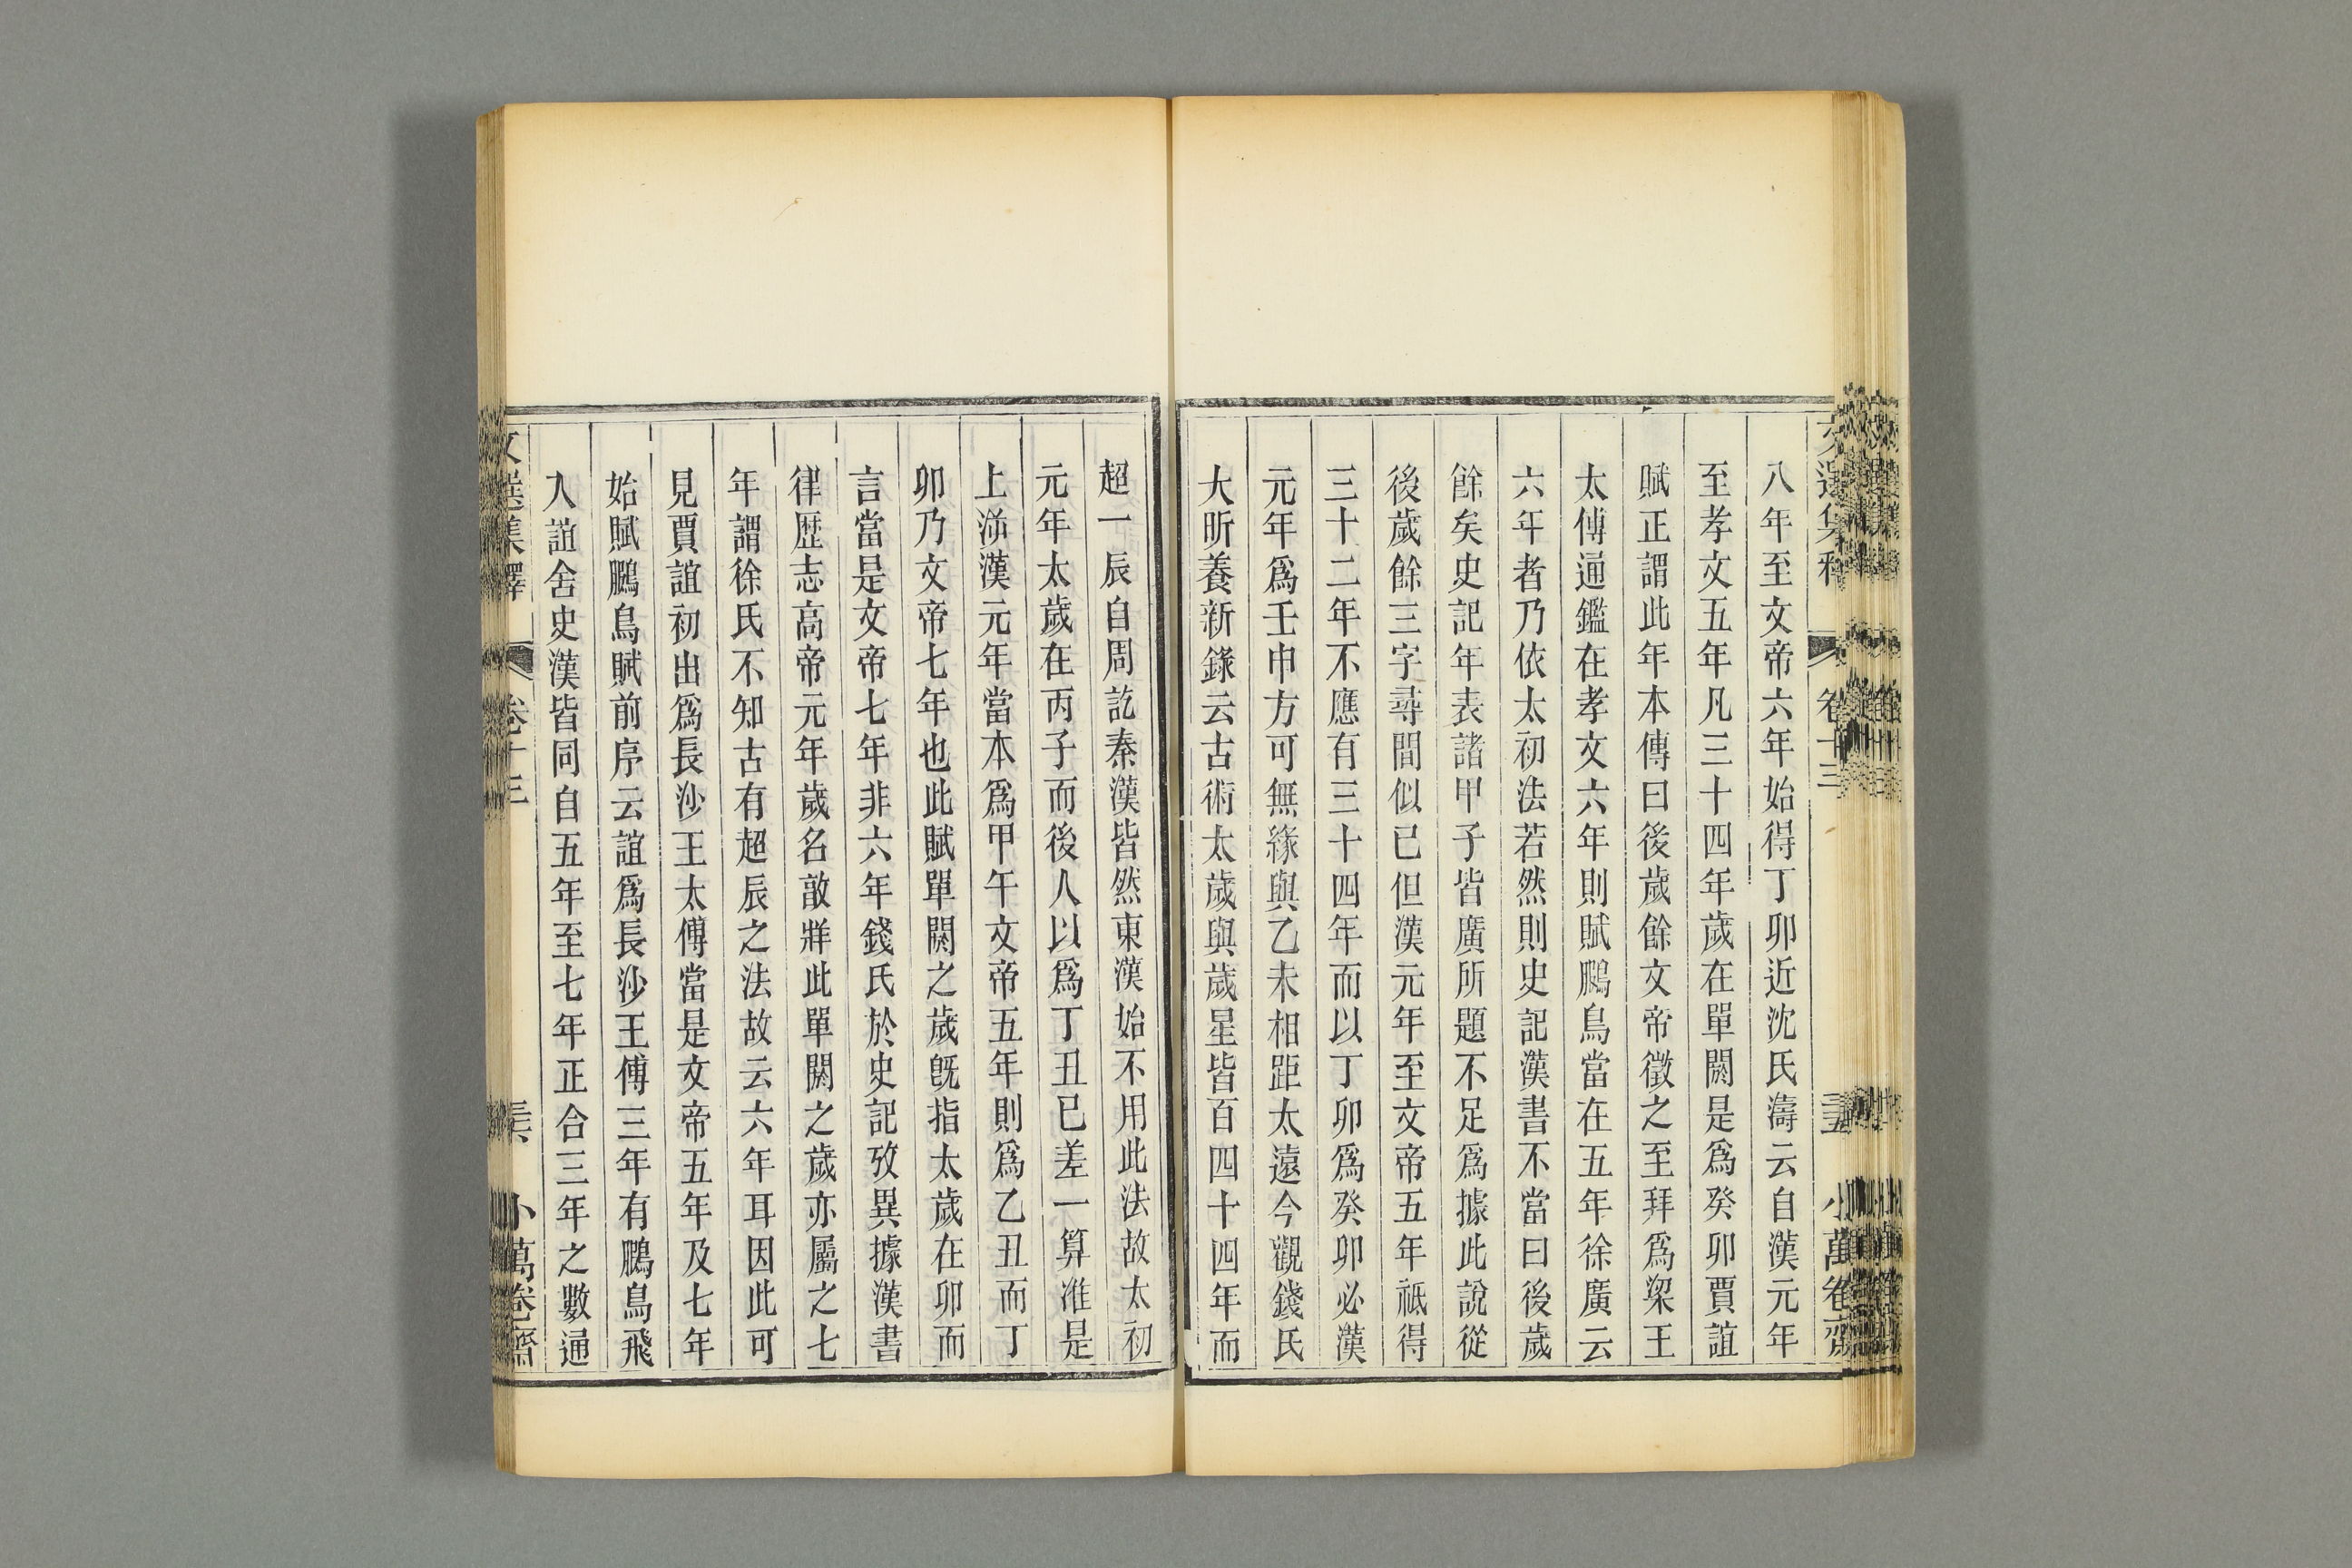 文選集釋 卷十三 三五 小萬卷齋
八年至文帝六年始得丁卯近沈氏濤云自漢元年
至孝文五年凡三十四年歲在單閼是爲癸卯賈誼
賦正謂此年本傳曰後歲餘文帝徵之至拜爲梁王
太傅通鑑在孝文六年則賦鵩鳥當在五年徐廣云
六年者乃依太初法若然則史記漢書不當曰後歲
餘矣史記年表諸甲子皆廣所題不足爲據此說從
後歲餘三字尋間似已但漢元年至文帝五年祗得
三十二年不應有三十四年而以丁卯爲癸卯必漢
元年爲壬申方可無緣與乙未相距太遠今觀錢氏
大昕養新錄云古術太歲與歲星皆百四十四年而
超一辰自周訖秦漢皆然東漢始不用此法故太初
元年太歲在丙子而後人以爲丁丑已差一算准是
上泝漢元年當本爲甲午文帝五年則爲乙丑而丁
卯乃文帝七年也此賦單閼之歲旣指太歲在卯而
言當是文帝七年非六年錢氏於史記攷異據漢書
律歷志高帝元年歲名敦牂此單閼之歲亦屬之七
年謂徐氏不知古有超辰之法故云六年耳因此可
見賈誼初出爲長沙王太傅當是文帝五年及七年
始賦鵩鳥賦前序云誼爲長沙王傅三年有鵩鳥飛
入誼舍史漢皆同自五年至七年正合三年之數通
文選集釋 卷十三 三六 小萬卷齋